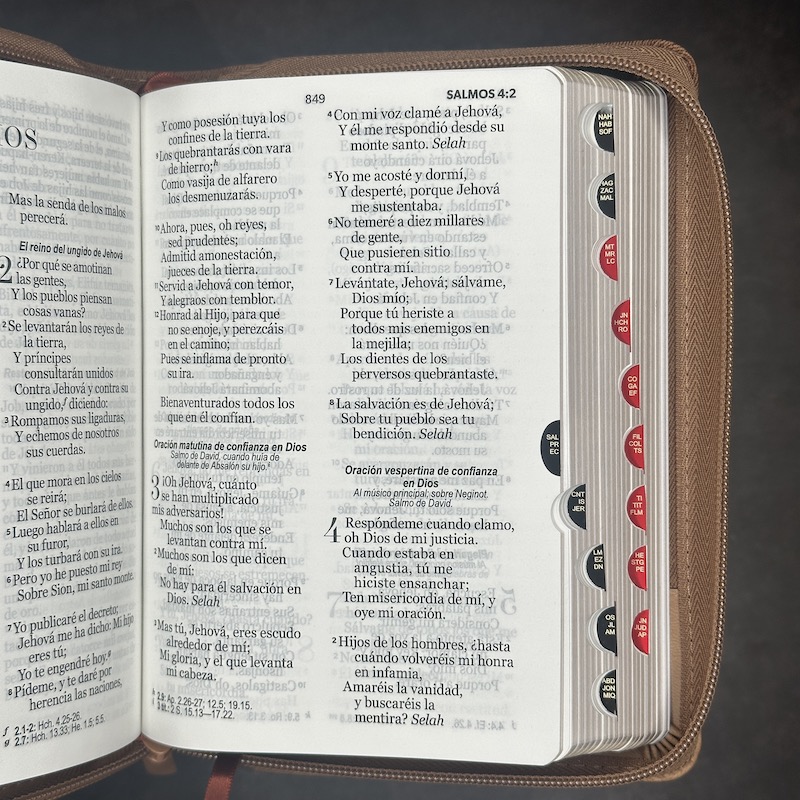 IOS
Mas la senda de los malos
perecerá.
El reino del ungido de Jehová
2 ¿Por qué se amotinan
las gentes,
Y los pueblos piensan
cosas vanas?
2 Se levantarán los reyes de
la tierra,
Y príncipes
consultarán unidos
Contra Jehová y contra su
ungido,f diciendo:
3 Rompamos sus ligaduras,
Y echemos de nosotros
sus cuerdas.
4 El que mora en los cielos
se reirá;
El Señor se burlará de ellos.
5 Luego hablará a ellos en
su furor,
Y los turbará con su ira.
6 Pero yo he puesto mi rey
Sobre Sion, mi santo monte.
7 Yo publicaré el decreto;
Jehová me ha dicho: Mi hijo
eres tú;
Yo te engendré hoy.g
8 Pídeme, y te daré por
herencia las naciones,
f 2.1-2: Hch. 4.25-26.
g 2.7: Hch. 13.33; He. 1.5; 5.5.
849
SALMOS 4:2
Y como posesión tuya los
confines de la tierra.
9 Los quebrantarás con vara
de hierro;h
Como vasija de alfarero
los desmenuzarás.
10 Ahora, pues, oh reyes,
sed prudentes;
Admitid amonestación,
jueces de la tierra.
11 Servid a Jehová con temor,
Y alegraos con temblor.
12 Honrad al Hijo, para que
no se enoje, y perezcáis
en el camino;
Pues se inflama de pronto
su ira.
Bienaventurados todos los
que en él confían.
Oración matutina de confianza en Dios
Salmo de David, cuando huía de
delante de Absalón su hijo.
3 ¡Oh Jehová, cuánto
se han multiplicado
mis adversarios!
Muchos son los que se
levantan contra mí.
2 Muchos son los que dicen
de mí:
No hay para él salvación en
Dios. Selah
3 Mas tú, Jehová, eres escudo
alrededor de mí;
Mi gloria, y el que levanta
mi cabeza.
h 2.9: Ap. 2.26-27; 12.5; 19.15.
3 tít.: 2 S. 15.13—17.22.
4 Con mi voz clamé a Jehová,
Y él me respondió desde su
monte santo. Selah
5 Yo me acosté y dormí,
Y desperté, porque Jehová
me sustentaba.
6 No temeré a diez millares
de gente,
Que pusieren sitio
contra mí.
7 Levántate, Jehová; sálvame,
Dios mío;
Porque tú heriste a
todos mis enemigos en
la mejilla;
Los dientes de los
perversos quebrantaste.
8 La salvación es de Jehová;
Sobre tu pueblo sea tu
bendición. Selah
Oración vespertina de confianza
en Dios
Al músico principal; sobre Neginot.
Salmo de David.
4 Respóndeme cuando clamo,
oh Dios de mi justicia.
Cuando estaba en
angustia, tú me
hiciste ensanchar;
Ten misericordia de mí, y
oye mi oración.
2 Hijos de los hombres, ¿hasta
cuándo volveréis mi honra
en infamia,
Amaréis la vanidad,
y buscaréis la
mentira? Selah
SAL
PR
EC
CNT
IS
JER
LM
EZ
DN
OS
JL
AM
ABD
JON
MIQ
NAH
HAB
SOF
HAG
ZAC
MAL
MT
MR
LC
JN
HCH
RO
CO
GA
EF
FIL
COL
TS
TI
TIT
FLM
HE
STG
PE
JN
JUD
AP